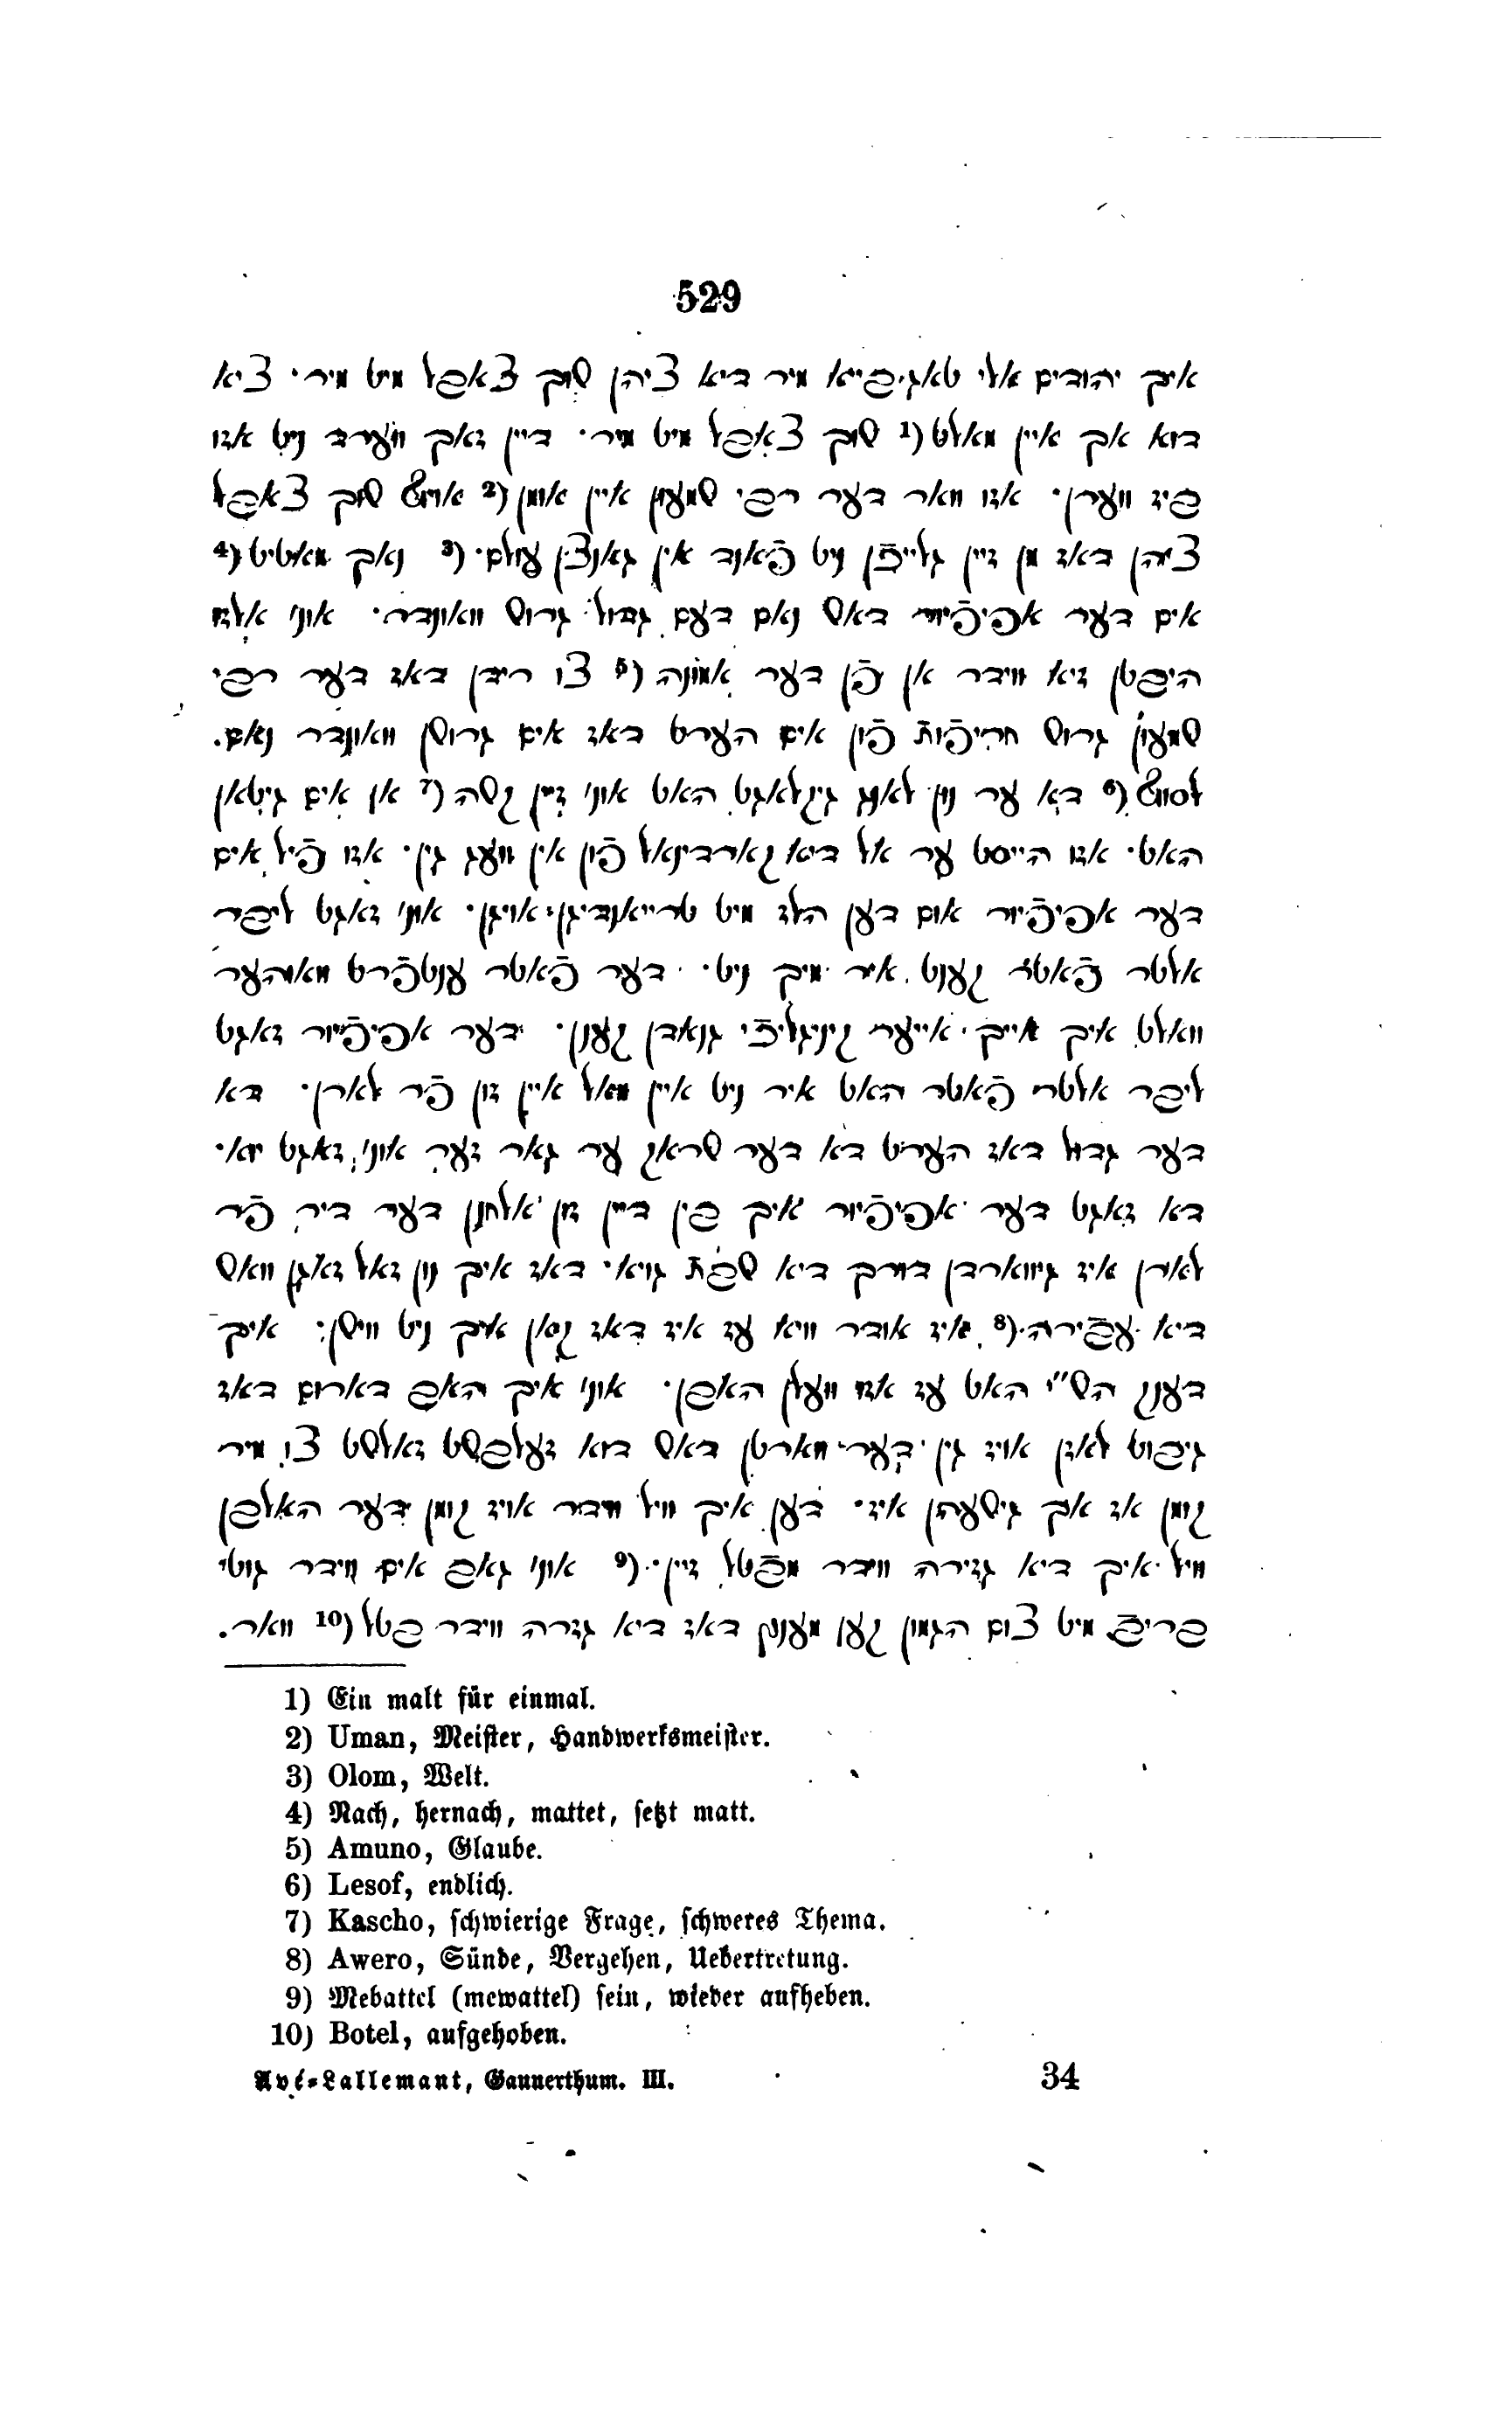 529
איך יהודים אלי טאג פייא מיר דיא ציהן שוך צאפל מיט מיר· ציא
דוא אך איין מאלט (1 שוך צאפל מיט מיר· דיין זאך ווערד ניט אזו
פיז ווערן· אזו וואר דער רפי שמעון איין אומן (2 אויף שוך צאפל
ציהן דאז מן זיין גלייכֿן ניט פֿאנד אין גאנצין עולם· (3 נאך מאטיט (4
אים דער אפיפֿיור דאש נאם דעם גדול גרוש וואונדר· אוני אלזו
היפטן זיא ווידר אן פֿן דער אמונה (5 צו רידן דאז דער רפי
שמעון גרוש חריפֿות פֿון אים הערט דאז אים גרושן וואונדר נאם.
לסוף (6 דא ער נון לאנג גיקלאגט האט אוני זיין קשה (7 אן אים גיטאן
האט· אזו הייסט ער אל דיא קארדינאל פֿון אין וועג גין· אזו פֿיל אים
דער אפיפֿיור אום דען הלז מיט טרייאנדיגן אויגן· אוני זאגט ליפר
אלטר פֿאטר קענט איר מיך ניט· דער פֿאטר ענטפֿרט מאוהער
וואלט איך אייך אייער קיניגליכֿי גנאדן קענן· דער אפיפֿיור זאגט
ליפר אלטר פֿאטר האט איר ניט איין מאל איין זון פֿר לארן· דא
דער גדול דאז הערט דא דער שראק ער גאר זער אוני זאגט יוא·
דא זאגט דער אפיפֿיור איך פין דיין זון אלחנן דער דיר פֿר
לארן איז גיווארדן דורך דיא שפת גויא· דאז איך נון זאל זאגן וואש
דיא עפֿירה (8 איז אודר וויא עז איז דאז קאן איך ניט ווישן· איך
דענק הש״י האט עז אזו וועלן האפן· אוני איך האפ דארום דאז
גיפוט לאזן אויז גין דער ווארטן דאש דוא זעלפשט זאלשט צו מיר
קומן אז אך גישעהן איז· דען איך וויל ווידר אויז קומן דער האלפן
וויל איך דיא גזירה ווידר מפֿטל זיין· (9 אוני גאפ אים ווידר גוטי
פריפֿ מיט צום הגמון קען מענץ דאז דיא גזרה ווידר פטל (10 וואר.
1) Ein malt für einmal.
2) Uman, Meister, Handwerksmeister.
3) Olom, Welt.
4) Nach, hernach, mattet, setzt matt.
5) Amuno, Glaube.
6) Lesof, endlich.
7) Kascho, schwierige Frage, schweres Thema.
8) Awero, Sünde, Vergehen, Uebertretung.
9) Mebattel (mewattel) sein, wieder aufheben.
10) Botel, aufgehoben.
Avé-Lallemant, Gaunerthum. III. 34